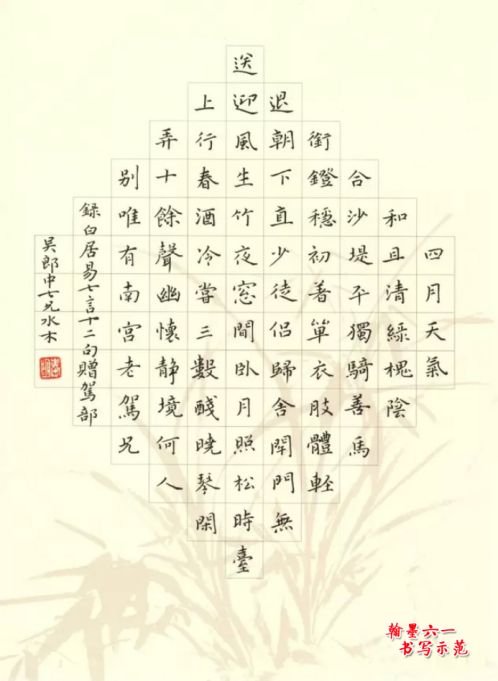 四月天氣
和且清綠槐陰
合沙堤平獨騎善馬
銜鐙穩初著單衣肢體軽
退朝下直少徒侶歸舍閉門無
送迎風生竹夜窓間臥月照松時臺
上行春酒冷嘗三數醆曉琴閑
弄十餘聲幽懷静境何人
别唯有南宫老駕兄
録白居易七言十二句贈駕部
吳郎中七兄水木
翰墨六一
书写示范